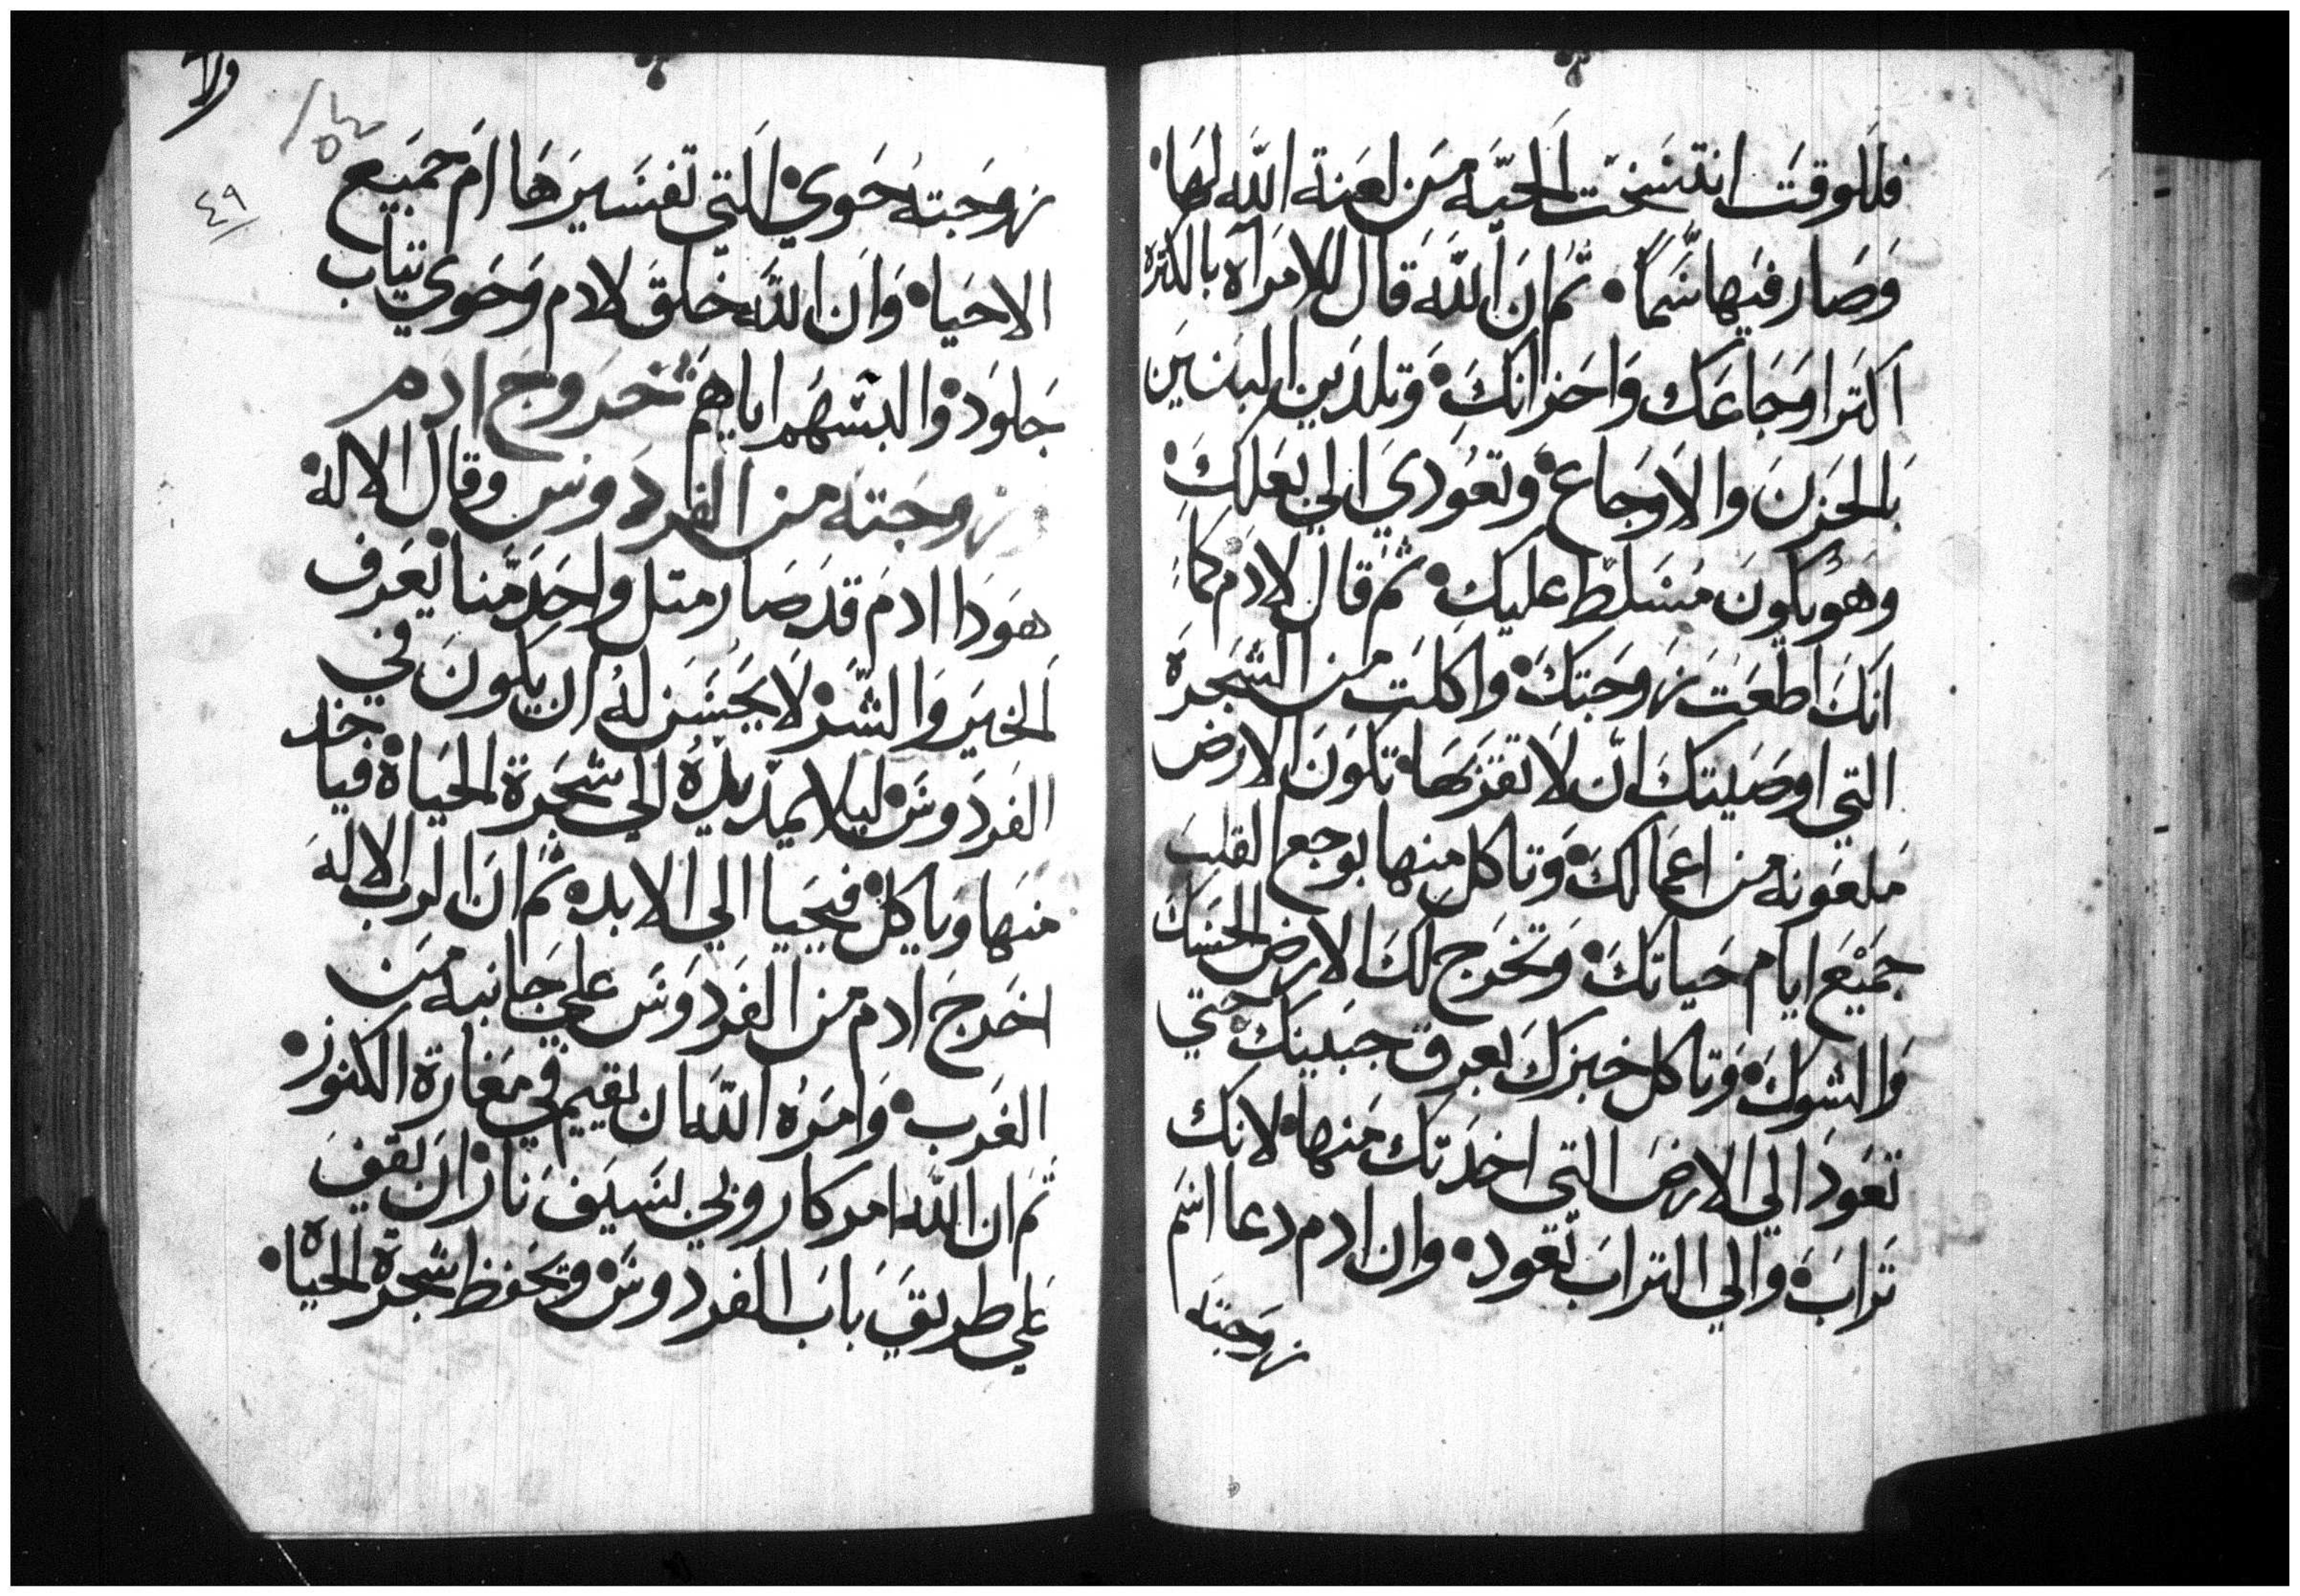 فللوقت انتسخت الحيّه من لعنة الله لها•
وصار فيها سمّاً• ثم ان الله قال للامرآه بالكتره
اكترا وجاعك واحزانك• وتلدين البنين
بالحزن والاوجاع• وتعودي الي بعلك•
وهو يكون مسلط عليك• ثم قال لادم كما
انك اطعت زوجتك• واكلت من الشجرة
التي اوصيتك ان لا تقربها• تكون الارض
ملعونه من اعمالك• وتاكل منها بوجع القلب
جميع ايام حياتك• وتخرج لك الارض الحسك
والشوك• وتاكل خبزك بعرق جبينك• حتي
تعود الي الارض التي اخدتك منها• لانك
تراب• والي التراب تعود• وان ادم دعا اسم
زوجته
ولا
٤٩
زوجته حوي• التي تفسيرها ام جميع
الاحيا• وان الله خلق لادم وحوي تياب
جلود• والبسهم اياهم خروج ادم
زوجته من الفردوس وقال الاله•
هودا ادم قد صار متل واحد منا• يعرف
الخير والشر• لا يحسن له ان يكون في
الفردوس• ليلا يمد يده الي شجرة الحياة• فياخد
منها وياكل• فيحيا الي الابد• ثم ان الرب الاله
اخرج ادم من الفردوس علي جانبه من
الغرب• وامره الله ان يقيم في مغارة الكنوز•
ثم ان الله امر كاروبي بسيف نار• ان يقف
علي طريق باب الفردوس• ويحفظ شجرة الحياه•